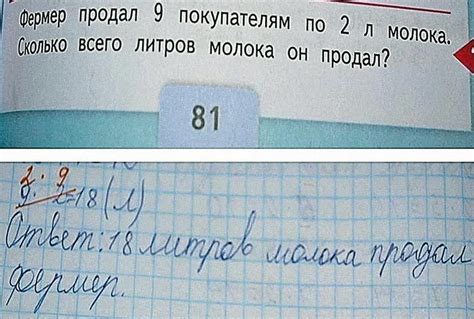 Фермер продал 9 покупателям по 2 л молока.
Сколько всего литров молока он продал?
81
2 · 9
9 · 2=18 (л)
Ответ: 18 литров молока продал
фермер.